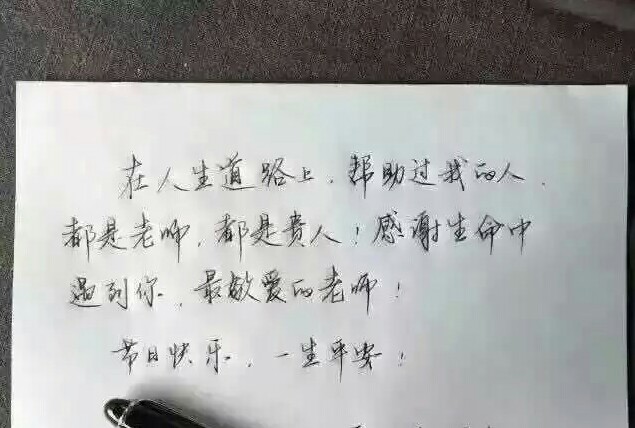 在人生道路上，帮助过我的人，
都是老师，都是贵人！感谢生命中
遇到你，最敬爱的老师！
节日快乐，一生平安！